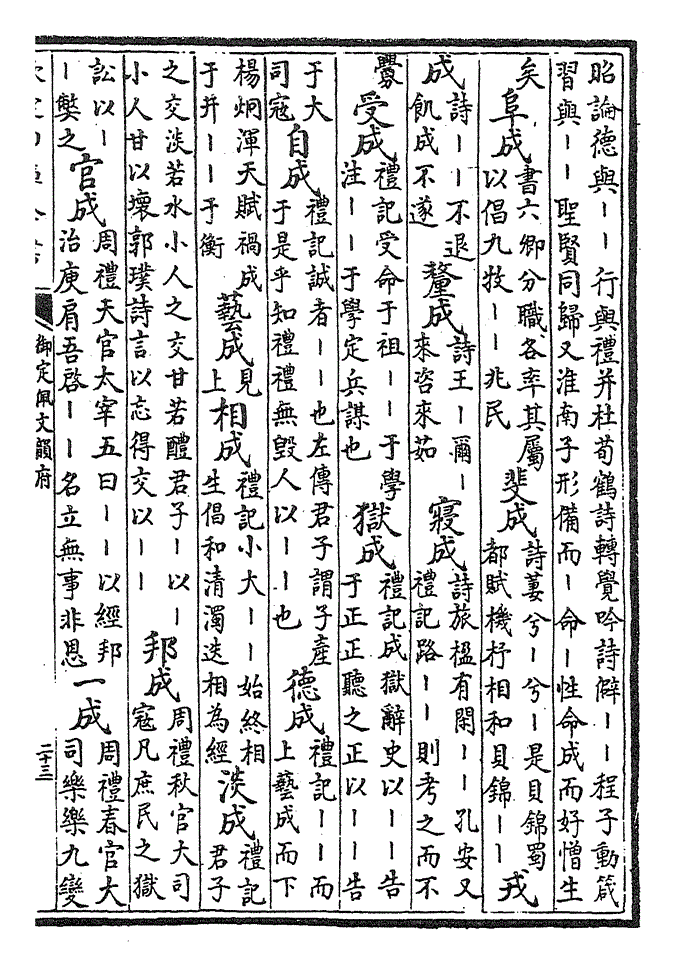 昭論德與——行與禮并杜荀鶴詩轉覺吟詩僻——程子動箴
習與——聖賢同歸又淮南子形備而—命—性命成而好憎生
矣
阜成
書六卿分職各率其屬
以倡九牧——兆民
斐成
詩萋兮—兮—是貝錦蜀
都賦機杼相和貝錦——
戎
成
詩——不退
飢成不遂
釐成
詩王—爾—
來咨來茹
寢成
詩旅楹有閑——孔安又
禮記路——則考之而不
釁
受成
禮記受命于祖——于學
注——于學定兵謀也
獄成
禮記成獄辭史以——告
于正正聽之正以——告
于大
司寇
自成
禮記誠者——也左傳君子謂子產
于是乎知禮禮無毀人以——也
德成
禮記——而
上藝成而下
楊炯渾天賦禍成
于井——于衡
藝成
見
上
相成
禮記小大——始終相
生倡和清濁迭相為經
淡成
禮記
君子
之交淡若水小人之交甘若醴君子—以—
小人甘以壞郭璞詩言以忘得交以——
邦成
周禮秋官大司
寇凡庶民之獄
訟以—
—獘之
官成
周禮天官太宰五曰——以經邦
治庾肩吾啓——名立無事非恩
一成
周禮春官大
司樂樂九變
御定佩文韻府
二十三